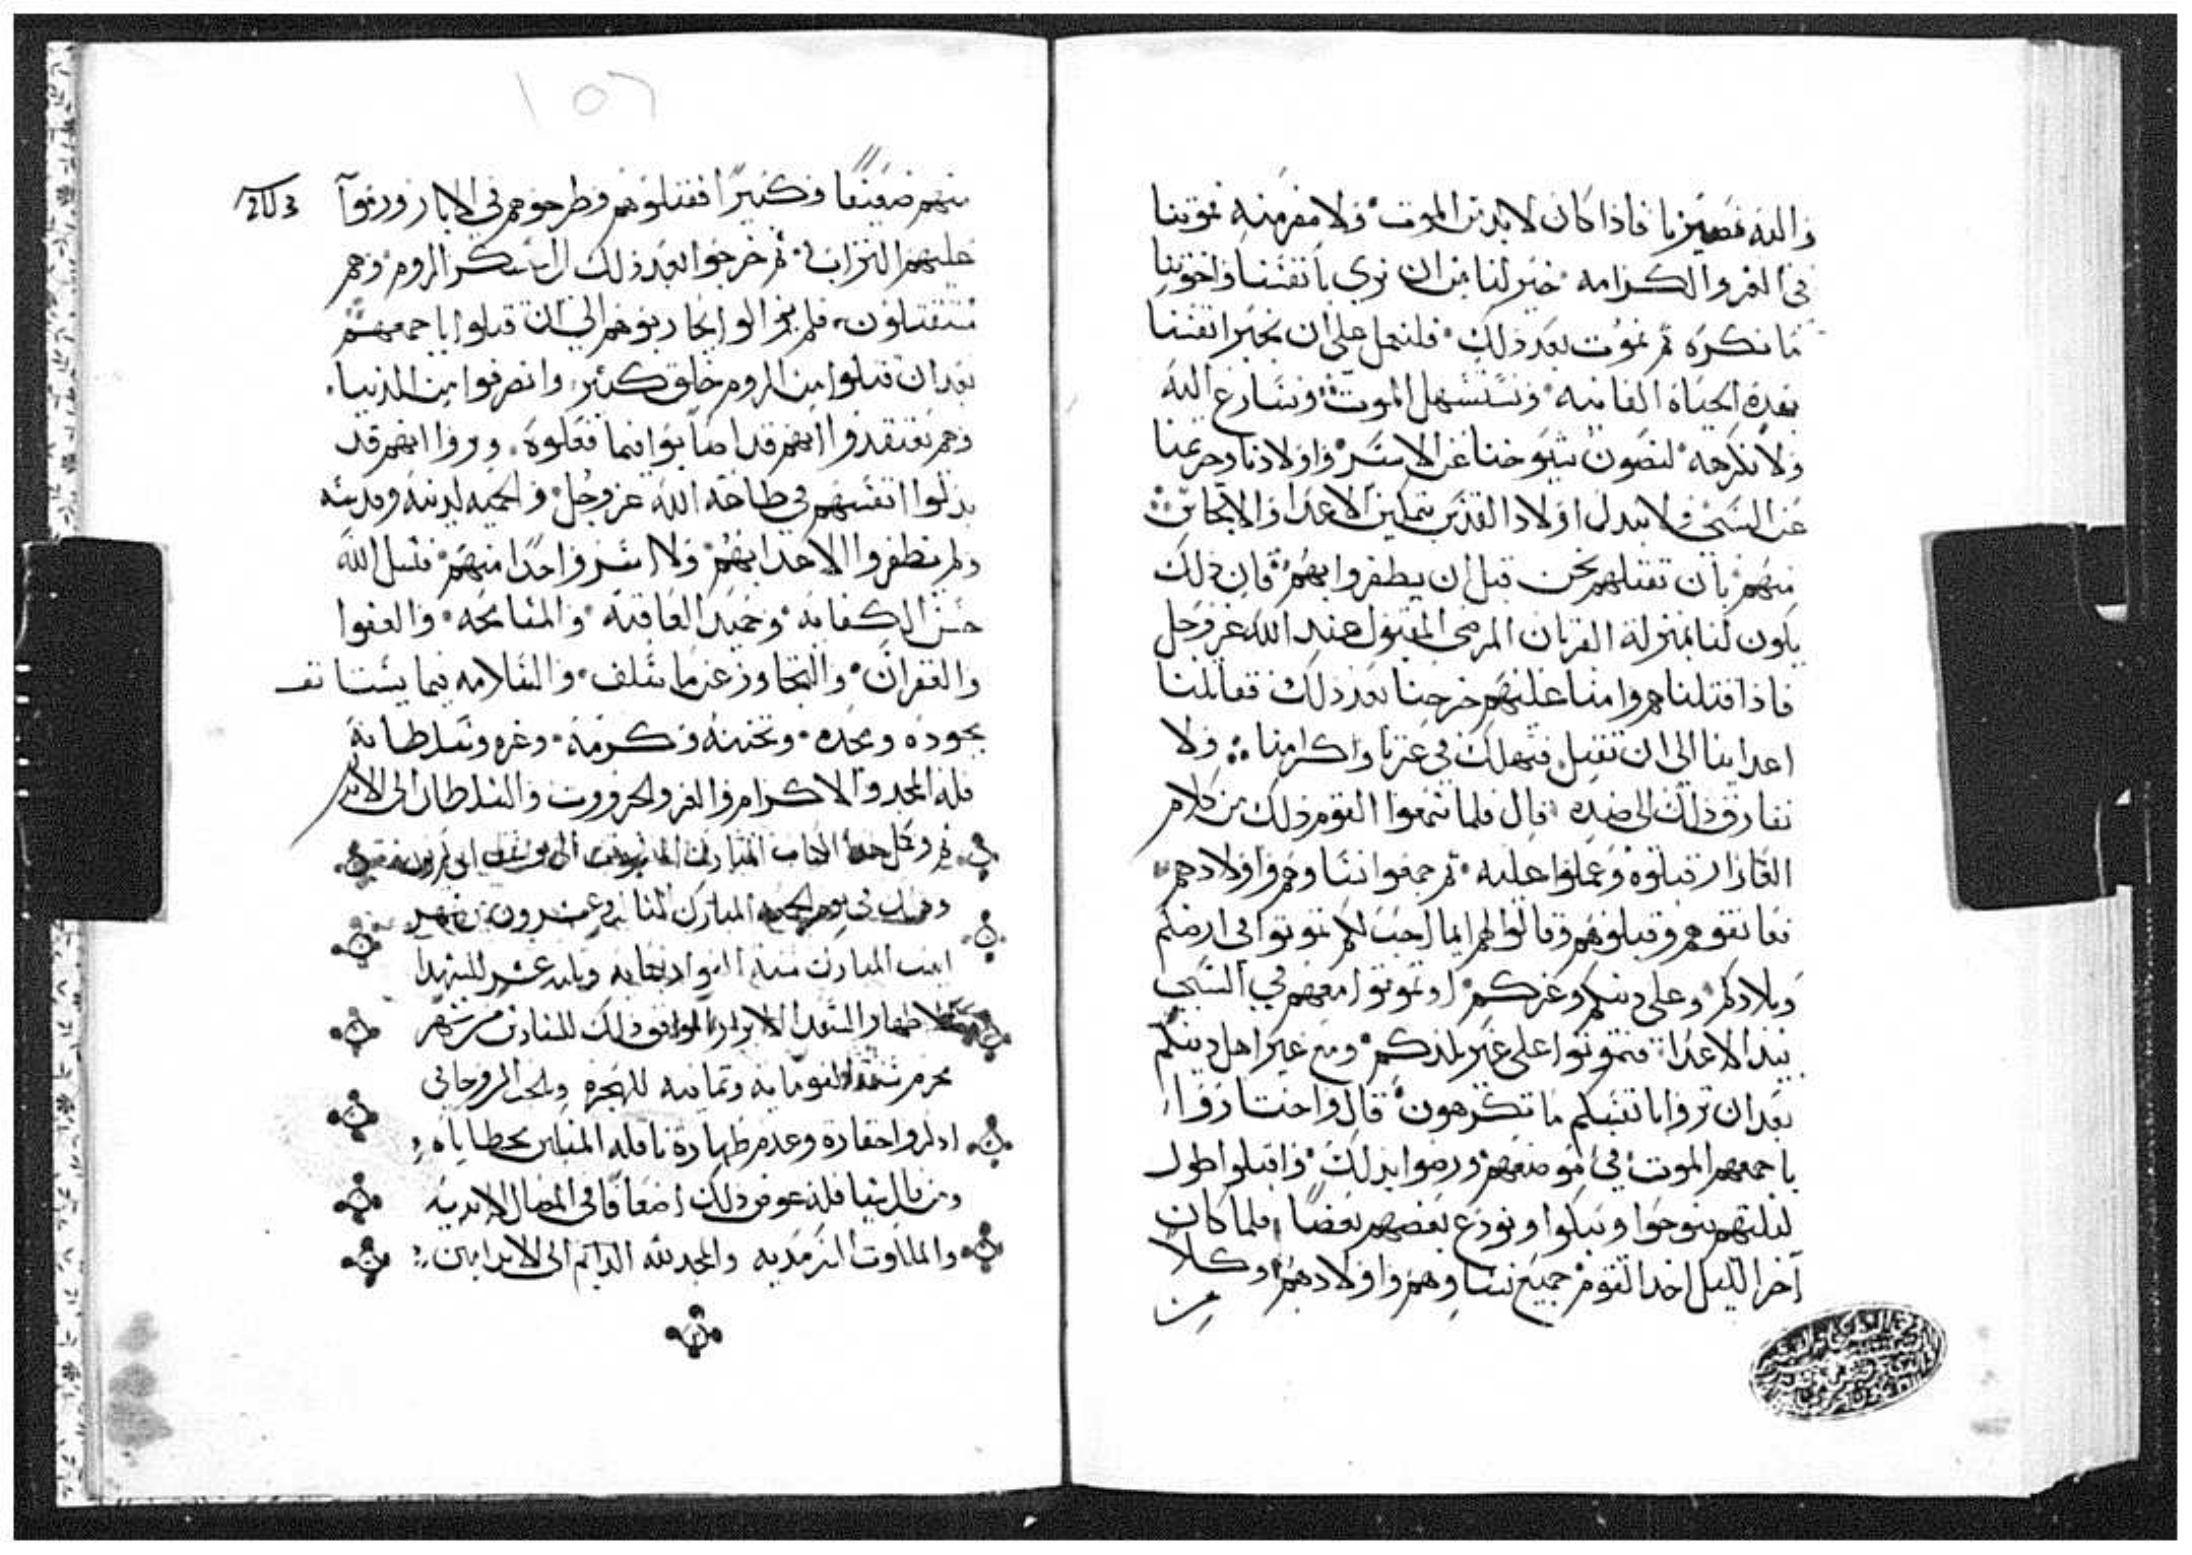 والله فصيرنا فاذا كان لا بد من الموت ولا مفر منه فموتنا
في العز والكرامه خير لنا من ان نري بانفسنا واخوتنا
ما نكره ثم نموت بعد ذلك فلنعمل علي ان نخبر انفسنا
بهذه الحياة الفانيه ونستسهل الموت ونسارع اليه
ولا نكرهه لنصون شيوخنا عن الاسر واولادنا وحريمنا
عن السبي ولا نبدل اولاد القدس بتمكين الاعدا والانجاس
منهم بان نقتلهم نحن قبل ان يظفروا بهم فان ذلك
يكون لنا بمنزلة القربان المرضي المقبول عند الله عز وجل
فاذا قتلناهم وامنا عليهم خرجنا بعد ذلك فقاتلنا
اعداينا الي ان نقتل فنهلك في عزنا واكرامنا ولا
نفارق ذلك الي ضده قال فلما سمعوا القوم ذلك من كلام
العازار قبلوه وعملوا عليه ثم جمعوا نساوهم واولادهم
فعانقوهم وقبلوهم وقالوا لهم ايما احب لكم تموتوا في ارضكم
وبلادكم وعلي دينكم وعزكم او تموتوا معهم في السبي
بيد الاعدا فتموتوا علي غير بلدكم ومع غير اهل دينكم
بعد ان تروا بانفسكم ما تكرهون قال واختاروا
باجمعهم الموت في موضعهم ورضوا بذلك واقبلوا طول
ليلتهم ينوحوا ويبكوا ويودع بعضهم بعضا فلما كان
آخر الليل اخذ القوم جميع نساوهم واولادهم وكلا
من
١٥٦
منهم ضعيفا وكبيرا فقتلوهم وطرحوهم في الابار وردموا
عليهم التراب ثم خرجوا بعد ذلك الي عسكر الروم وهم
مستقتلون فلم يزالوا يحاربوهم الي ان قتلوا باجمعهم
بعد ان قتلوا من الروم خلق كثير وانصرفوا من الدنيا
وهم يعتقدوا انهم قد اصابوا فيما فعلوه وروا انهم قد
بذلوا انفسهم في طاعة الله عز وجل والحميه لدينه وقدسه
ولم يظفروا الاعدا بهم ولا اسروا احدا منهم فنسل الله
حسن الكفايه وحميد العاقبه والمسامحه والعفوا
والغفران والتجاوز عن ما سلف والسلامه فيما يستانف
بجوده ومجده وتحننه وكرمه وعزه وسلطانه
فله المجد والاكرام والعز والجبروت والسلطان الي الابد
تم وكمل هذا الكتاب المبارك
في يوم الجمعه المبارك الثانيه وعشرون من شهر
ابيب المبارك سنة الف واربعمايه وثلثه عشر للشهدا
الاطهار السعدا الابرار الموافق ذلك للسادس من شهر
محرم سنة الف ومايه وتمانيه للهجره
وحقارة وعدم طهارة ناقله المتباين بخطاياه
ومن قال شيا فله عوض ذلك اضعافا في الابديه
والملكوت السرمديه والمجد لله الدايم الي الابد امين